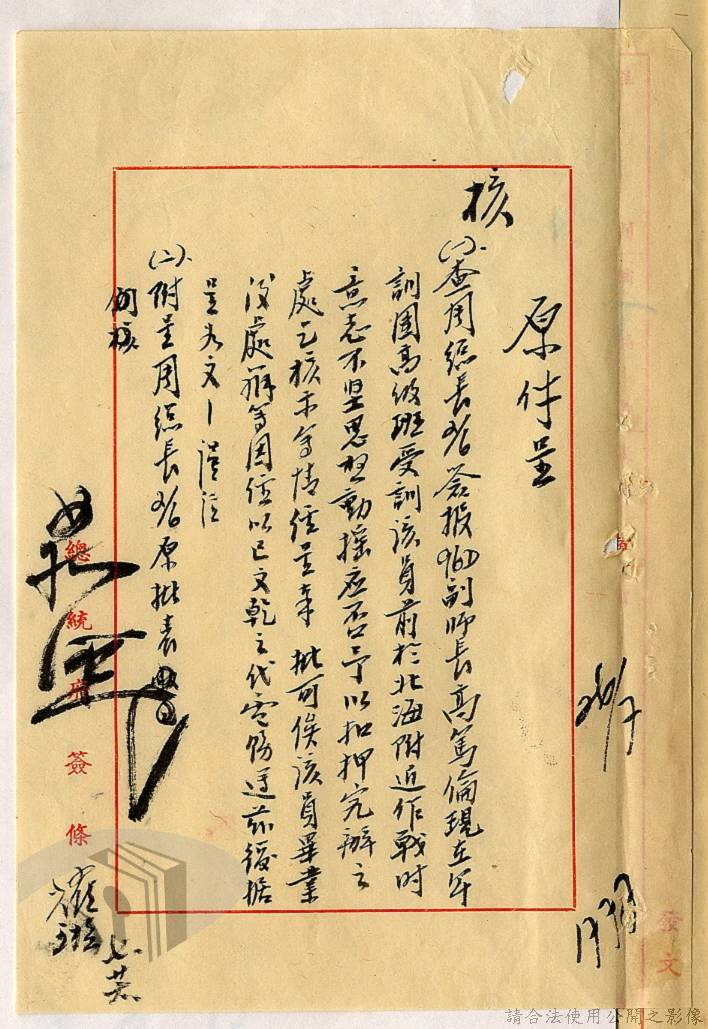 原件呈
核
㈠查周總長3/6簽報96D副師長高篤倫現在軍
訓團高級班受訓該員前於北海附近作戰時
意志不堅思想動搖應否予以扣押究辦之
處乞核示等情經呈奉 批可俟該員畢業
後處辦等因經以已文乾之代電飭遵茲復據
呈如文—謹註
㈡附呈周總長3/6原批表
仍核
總統府簽條
發文
請合法使用公開之影像